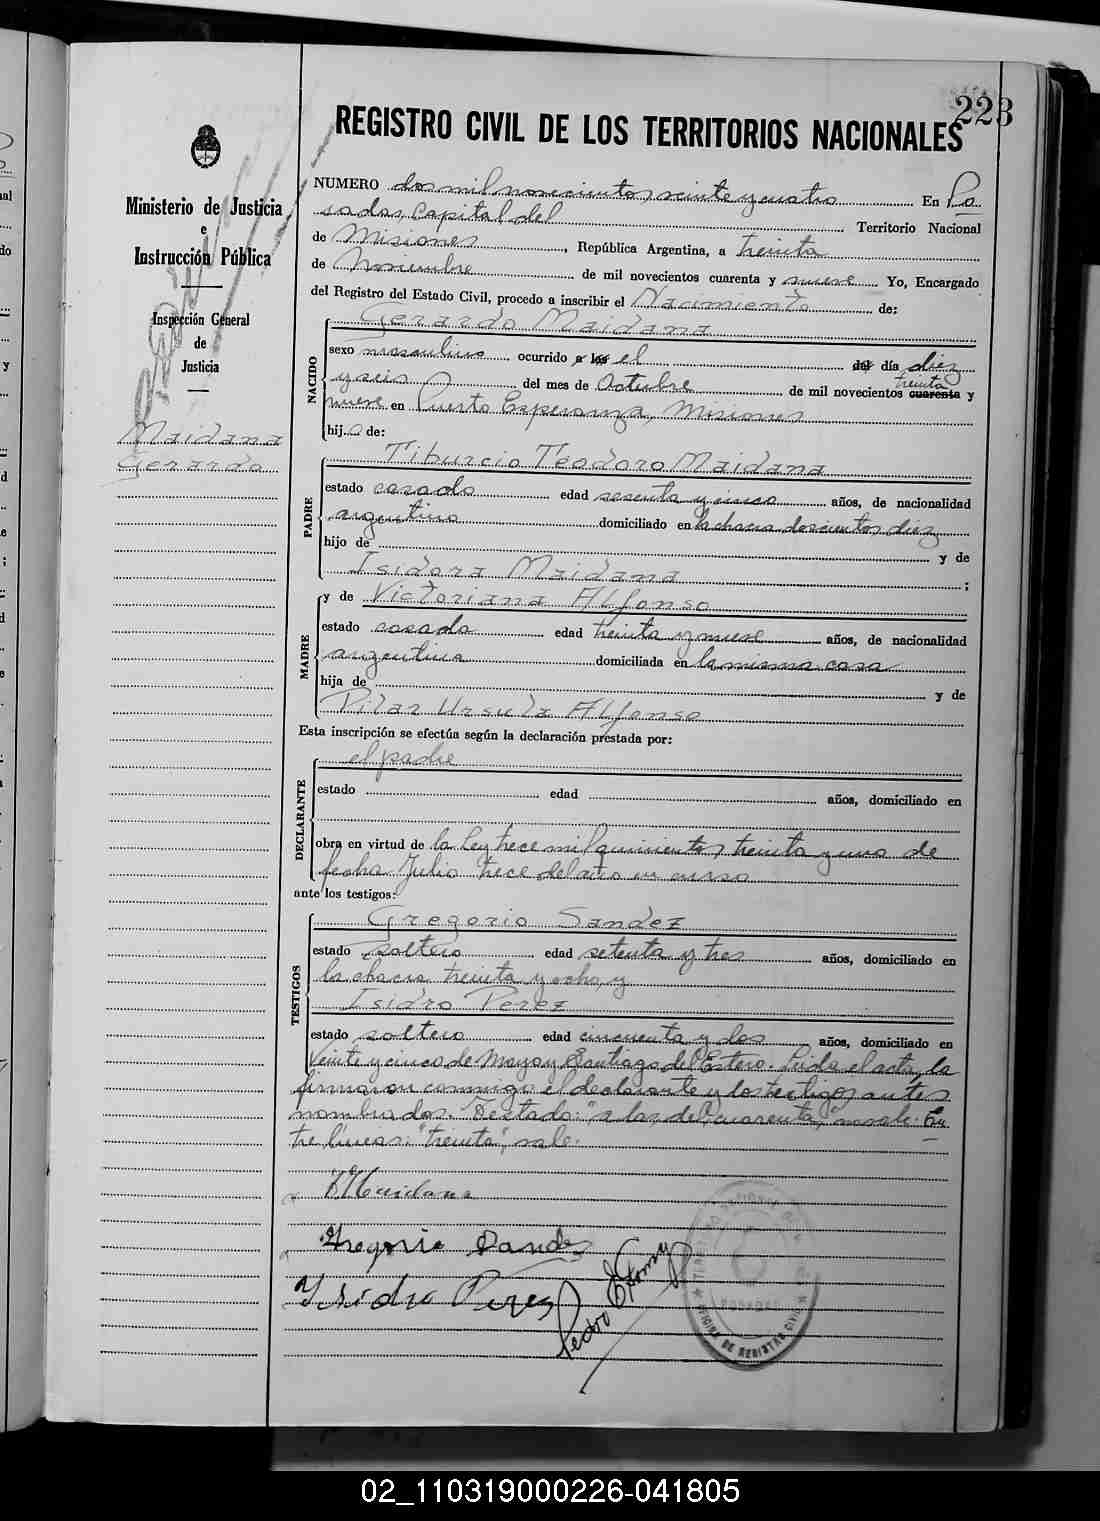 223
REGISTRO CIVIL DE LOS TERRITORIOS NACIONALES
Ministerio de Justicia
e
Instrucción Pública
Inspección General
de
Justicia
Maidana
Gerardo
NUMERO dos mil novecientos veinte y cuatro En Po
sadas, Capital del Territorio Nacional
de Misiones, República Argentina, a treinta
de Noviembre de mil novecientos cuarenta y nueve Yo, Encargado
del Registro del Estado Civil, procedo a inscribir el Nacimiento de:
Gerardo Maidana
NACIDO
sexo masculino ocurrido a las el del día diez
treinta
y seis del mes de Octubre de mil novecientos cuarenta y
nueve en Puerto Esperanza, Misiones
hijo de:
Tiburcio Teodoro Maidana
PADRE
estado casado edad sesenta y cinco años, de nacionalidad
argentino domiciliado en la chacra doscientos diez
hijo de y de
Isidora Maidana ;
y de Victoriana Alfonso
MADRE
estado casada edad treinta y nueve años, de nacionalidad
argentina domiciliada en la misma casa
hija de y de
Pilar Ursula Alfonso
Esta inscripción se efectúa según la declaración prestada por:
el padre
DECLARANTE
estado edad años, domiciliado en
obra en virtud de la Ley trece mil quinientos treinta y uno de
fecha Julio trece del año en curso
ante los testigos:
Gregorio Sandez
TESTIGOS
estado soltero edad setenta y tres años, domiciliado en
la chacra treinta y ocho, y
Isidro Perez
estado soltero edad cincuenta y dos años, domiciliado en
Veinte y cinco de Mayo y Santiago del Estero. Leida el acta, la
firmaron conmigo el declarante y los testigos antes
nombrados. Testado: "a las, del, cuarenta," no vale. En
tre líneas: "treinta", vale.
Maidana
Gregorio Sandes
Ysidro Peres
Pedro
OFICINA DE REGISTRO CIVIL
POSADAS
02_110319000226-041805